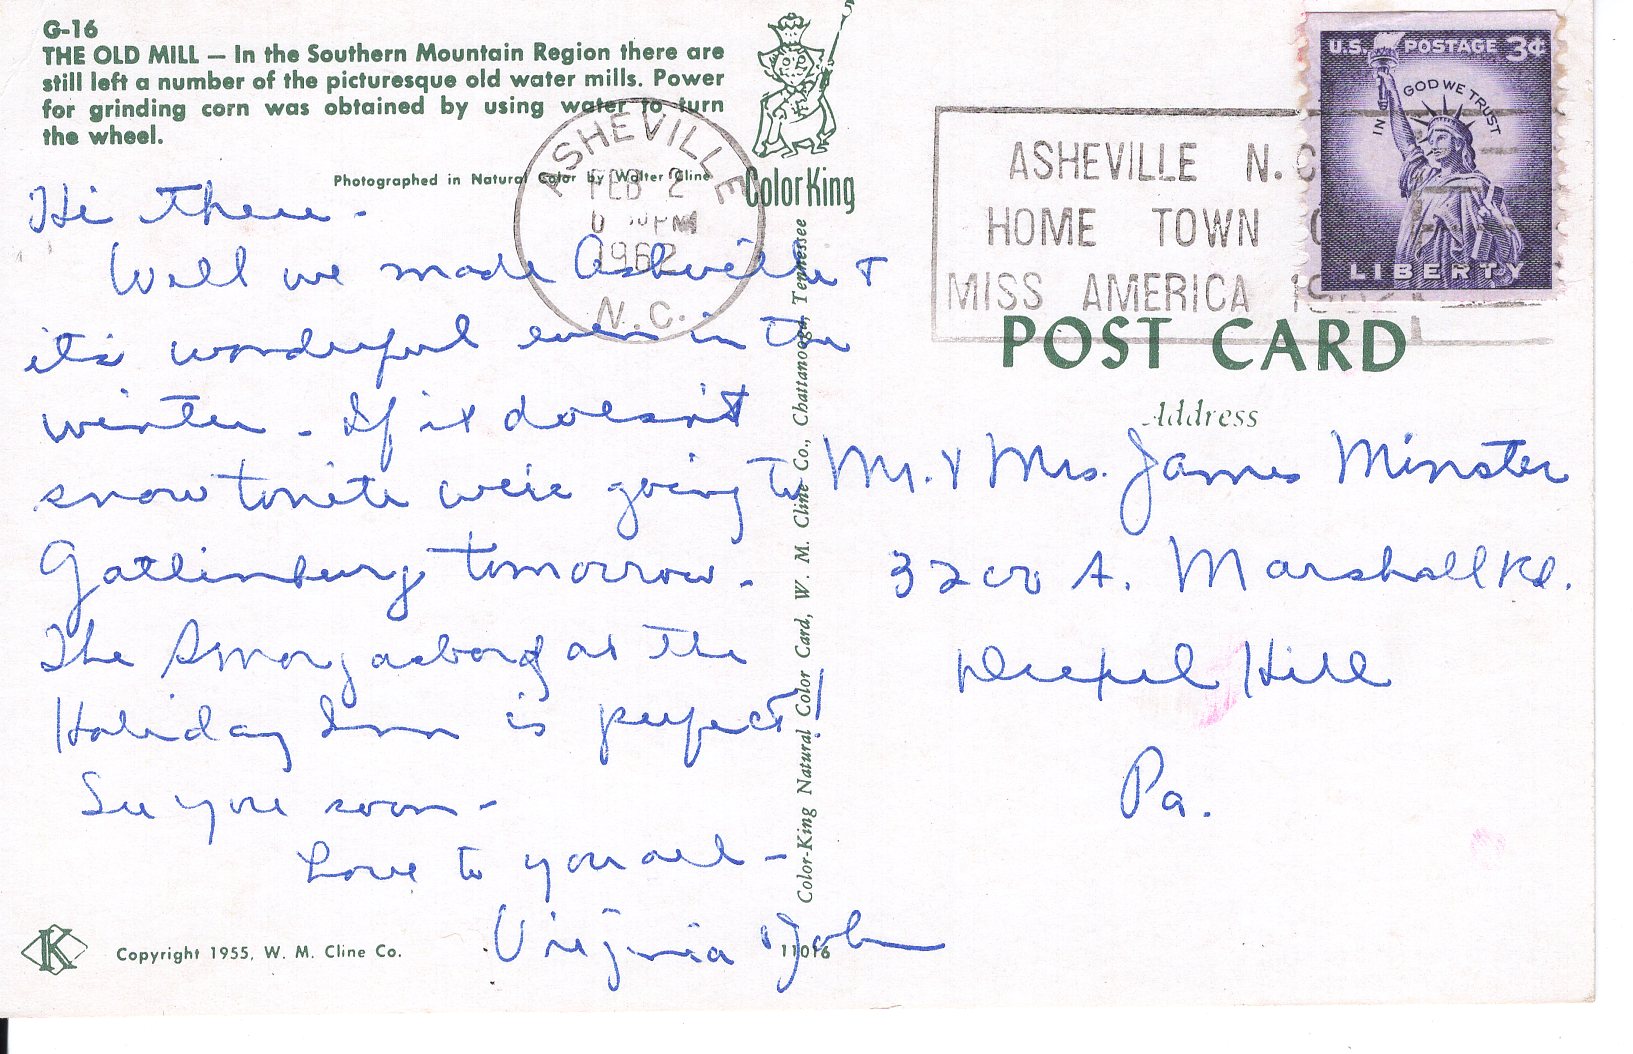 G-16
THE OLD MILL — In the Southern Mountain Region there are
still left a number of the picturesque old water mills. Power
for grinding corn was obtained by using water to turn
the wheel.
Photographed in Natural Color by Walter Cline
ColorKing
ASHEVILLE
FEB 2
PM
1962
N.C.
ASHEVILLE N.C.
HOME TOWN O
MISS AMERICA 1962
U.S. POSTAGE 3¢
IN GOD WE TRUST
LIBERTY
Hi there -
Well we made Asheville &
it's wonderful even in the
winter - If it doesn't
snow tonite we're going to
Gatlinburg tomorrow -
The Smorgasbord at the
Holiday Inn is perfect!
See you soon -
Love to you all -
Virginia & John
K
Copyright 1955, W. M. Cline Co.
11016
Color-King Natural Color Card, W. M. Cline Co., Chattanooga, Tennessee
POST CARD
Address
Mr. & Mrs. James Minster
3200 A. Marshall Rd.
Drexel Hill
Pa.